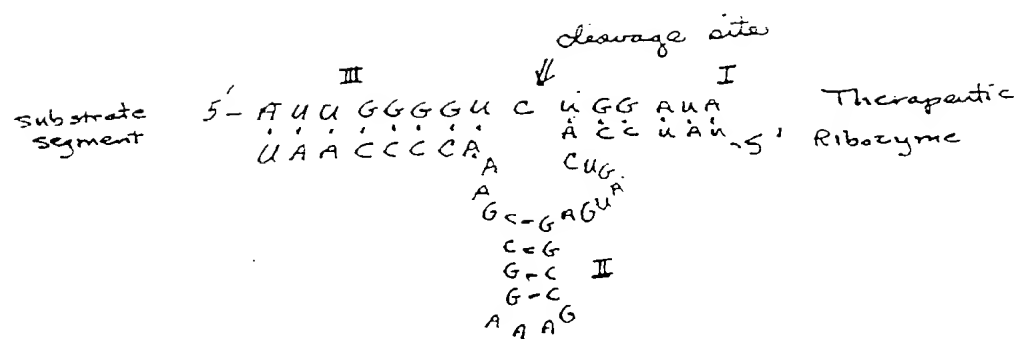 cleavage site
III I
substrate segment 5'- A U U G G G G U C U G G A U A Therapeutic Ribozyme
U A A C C C C A A C C U A U -5'
A C U G
A A
G C-G A G U
C=G
G-C II
G-C
A A A G